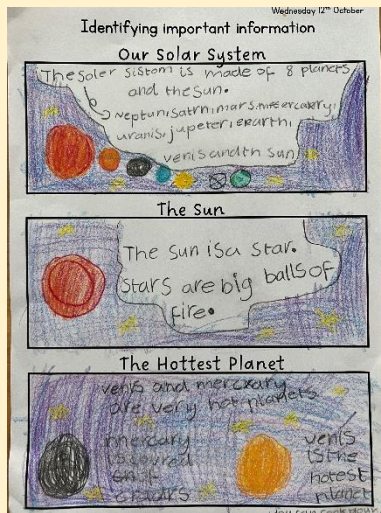 Wednesday 12th October
Identifying important information
Our Solar System
The soler sistom is made of 8 planets
and the sun.
Neptun, satrn, mars, mercary,
uranis, jupeter, erarth,
venis and th sun
The Sun
The sun is a star.
Stars are big balls of
fire.
The Hottest Planet
venis and mercrary
are very hot planets
mercary
is
venis
is the
hotest
planet